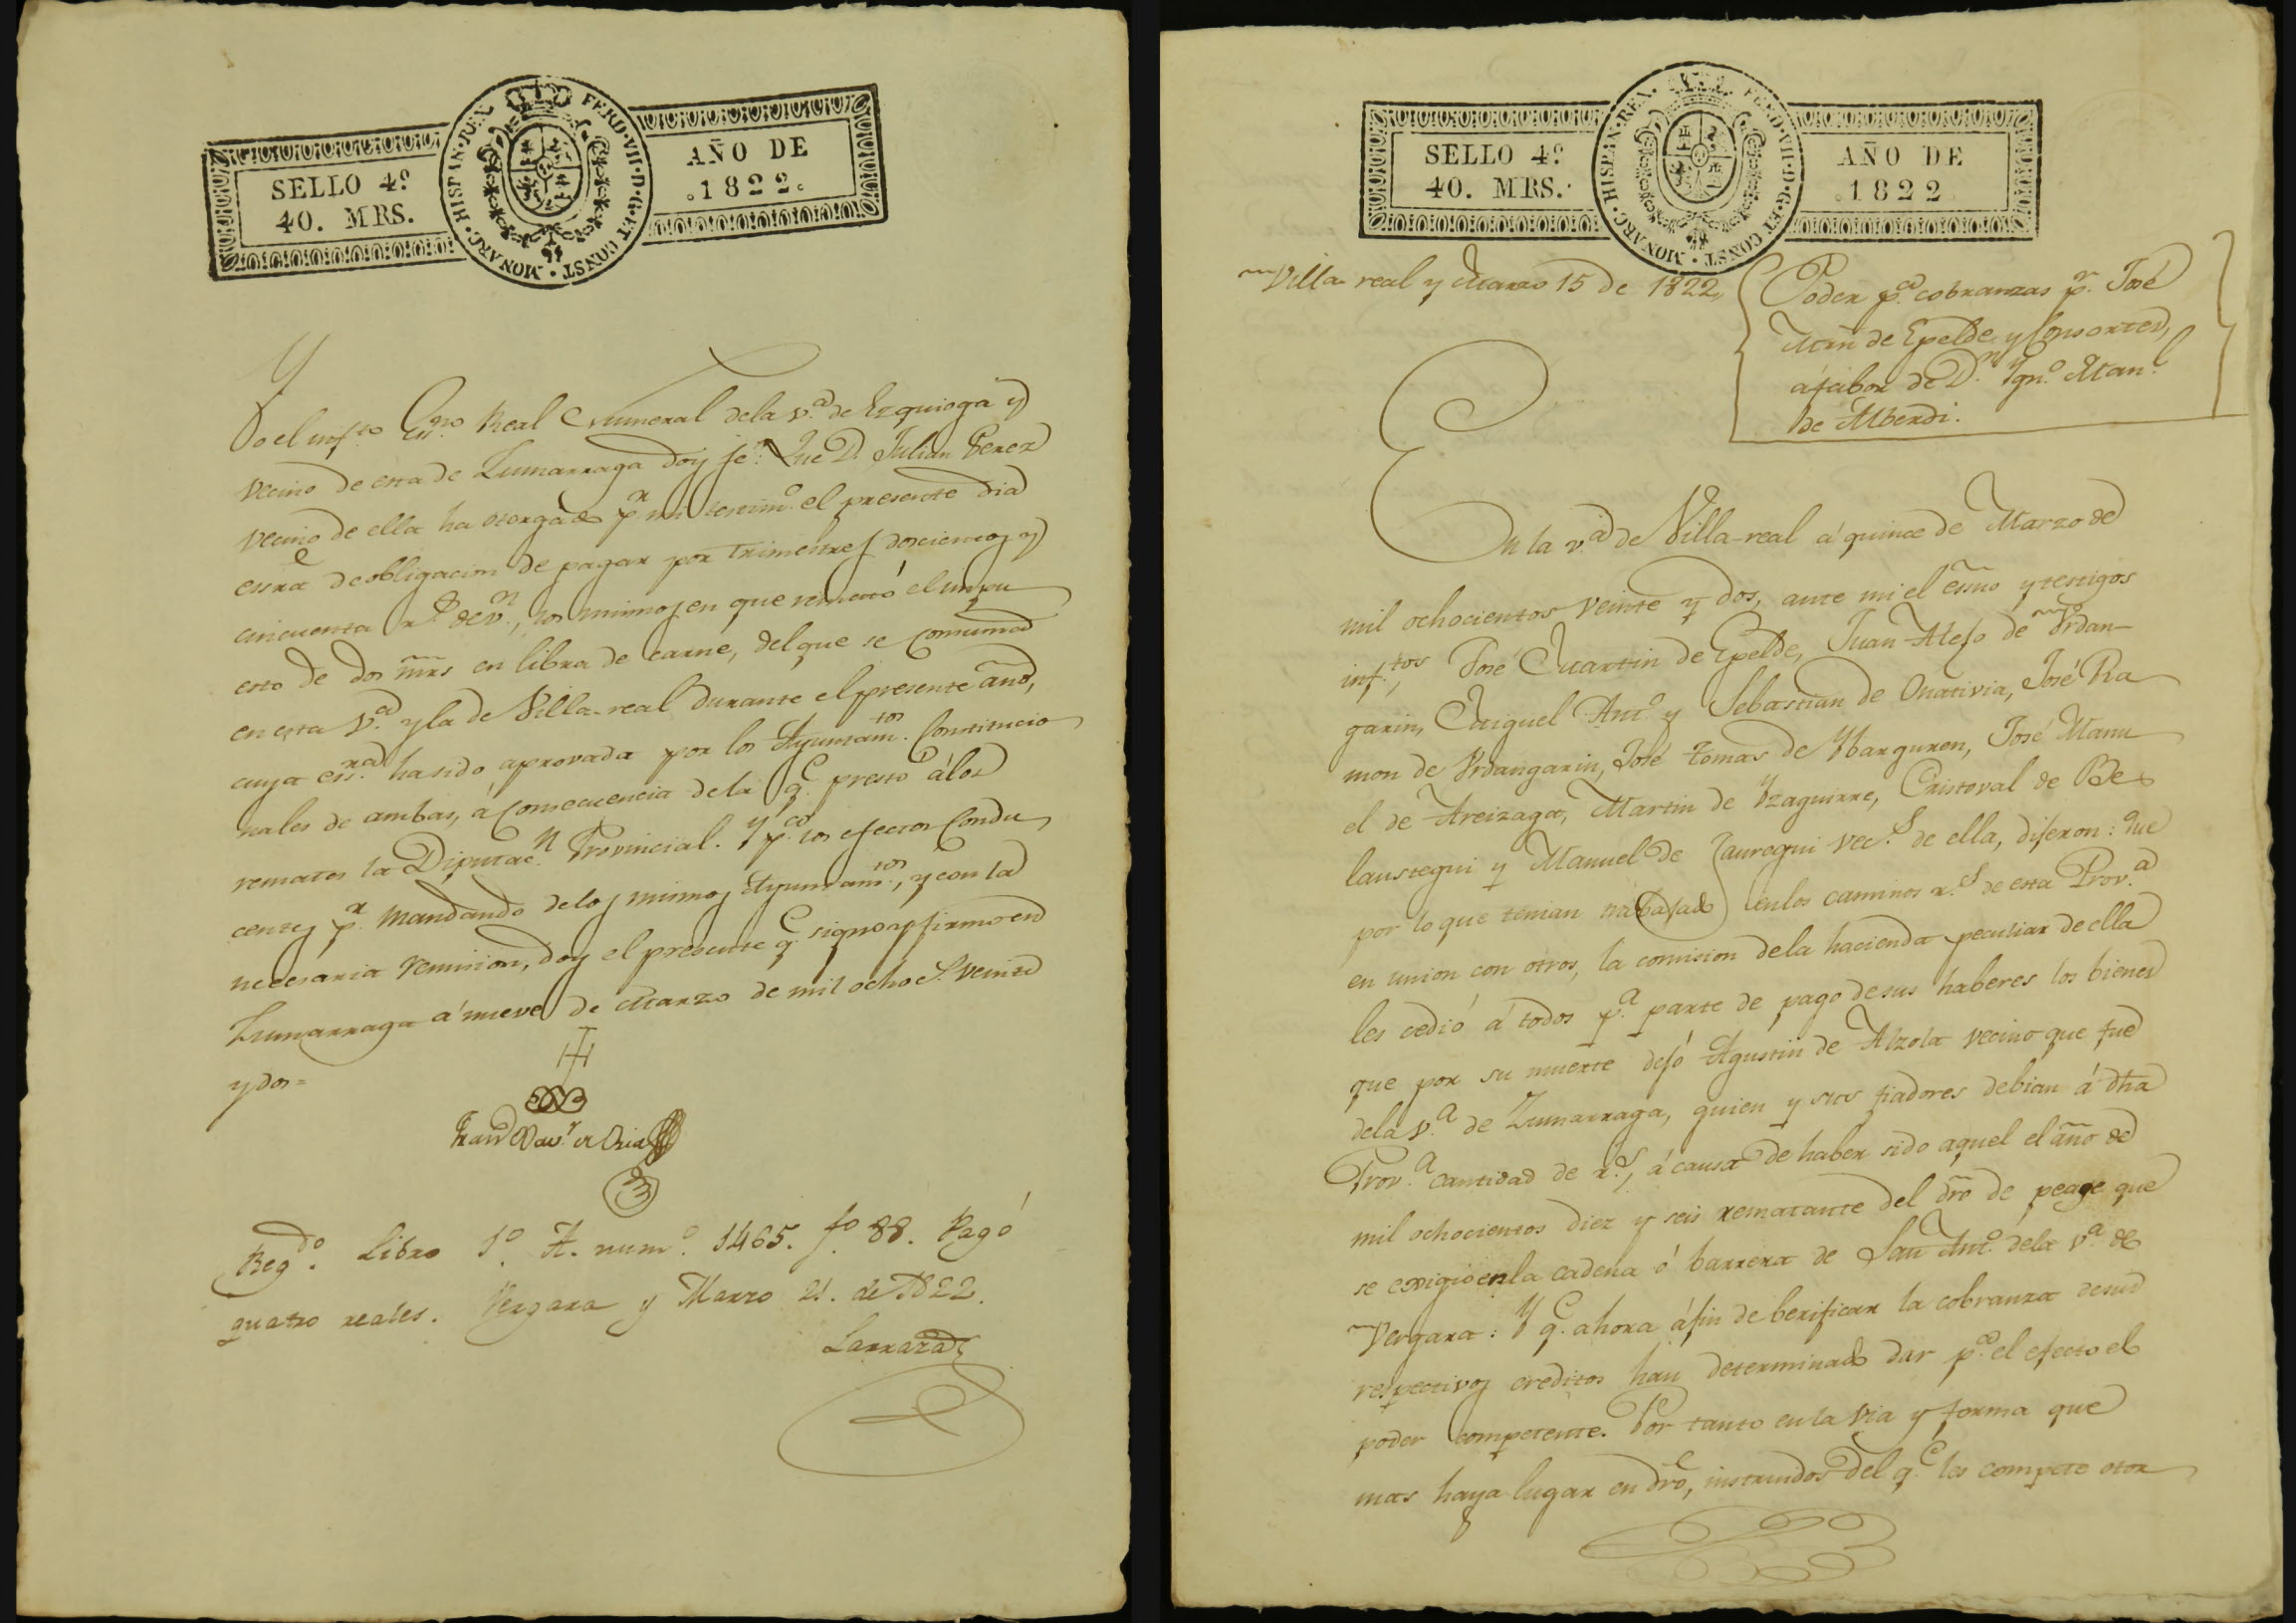 SELLO 4º
40. MRS.
HISPAN·REX. FERD·VII·D·G·ET CONST·MONARC·
AÑO DE
1822.
Yo el infto. Essno. Real Numeral dela v.ª de Ezquioga y
vecino de esta de Zumarraga doy fe: Que D. Julian Perez
vecino de ella ha otorgado pr. mi testimo. el presente dia
essra. de obligacion de pagar por trimestres doscientos y
cincuenta rs. de vn., los mismos en que remató el impu
esto de dos mrs en libra de carne, del que se consuma
en esta v.ª y la de Villa-real durante el presente año,
cuya essra. ha sido aprovada por los Ayuntamtos. Constitucio
nales de ambas, á consecuencia de la qe. prestó á los
remates la Diputacn. Provincial. Y pa. los efectos Condu
centes pr. mandando de los mismos Ayuntamtos., y con la
necesaria remision, doy el presente qe. signo y firmo en
Zumarraga á nueve de Marzo de mil ochocs. veinte
y dos=
Regdo. Libro 1º. A. numº. 1465. fº. 88. Pagó
quatro reales. Vergara y Marzo 21. de 1822.
SELLO 4º
40. MRS.
HISPAN·REX. FERD·VII·D·G·ET CONST·MONARC·
AÑO DE
1822
Villa real y Marzo 15 de 1822,
Poder pa. cobranzas pr. José
Mrñ de Epelde y Consortes,
á fabor de Dn. Ygno. Manl.
de Alberdi.
En la v.ª de Villa-real á quince de Marzo de
mil ochocientos veinte y dos, ante mi el essno y testigos
inftos., José Martin de Epelde, Juan Alejo de Urdan-
garin, Miguel Antº. y Sebastian de Oñativia, José Ra
mon de Urdangarin, José Tomas de Ybarguren, José Manu
el de Areizaga, Martin de Yzaguirre, Cristoval de Be
laustegui y Manuel de Jauregui vecs. de ella, dijeron: Que
por lo que tenian trabajado en los caminos rs. de esta Prov.ª
en union con otros, la comision dela hacienda peculiar de ella
les cedió á todos pa. parte de pago de sus haberes los bienes
que por su muerte dejó Agustin de Alzola vecino que fue
dela v.ª de Zumarraga, quien y sus fiadores debian á dha
Prov.ª cantidad de rs., á causa de haber sido aquel el año de
mil ochocientos diez y seis rematante del dro de peage que
se exigió en la cadena ó barrera de San Antº. dela v.ª de
Vergara: Y qe. ahora á fin de berificar la cobranza de sus
respectivos creditos han determinado dar pa. el efecto el
poder competente. Por tanto en la via y forma que
mas haya lugar en dro, instruidos del qe. les compete otor